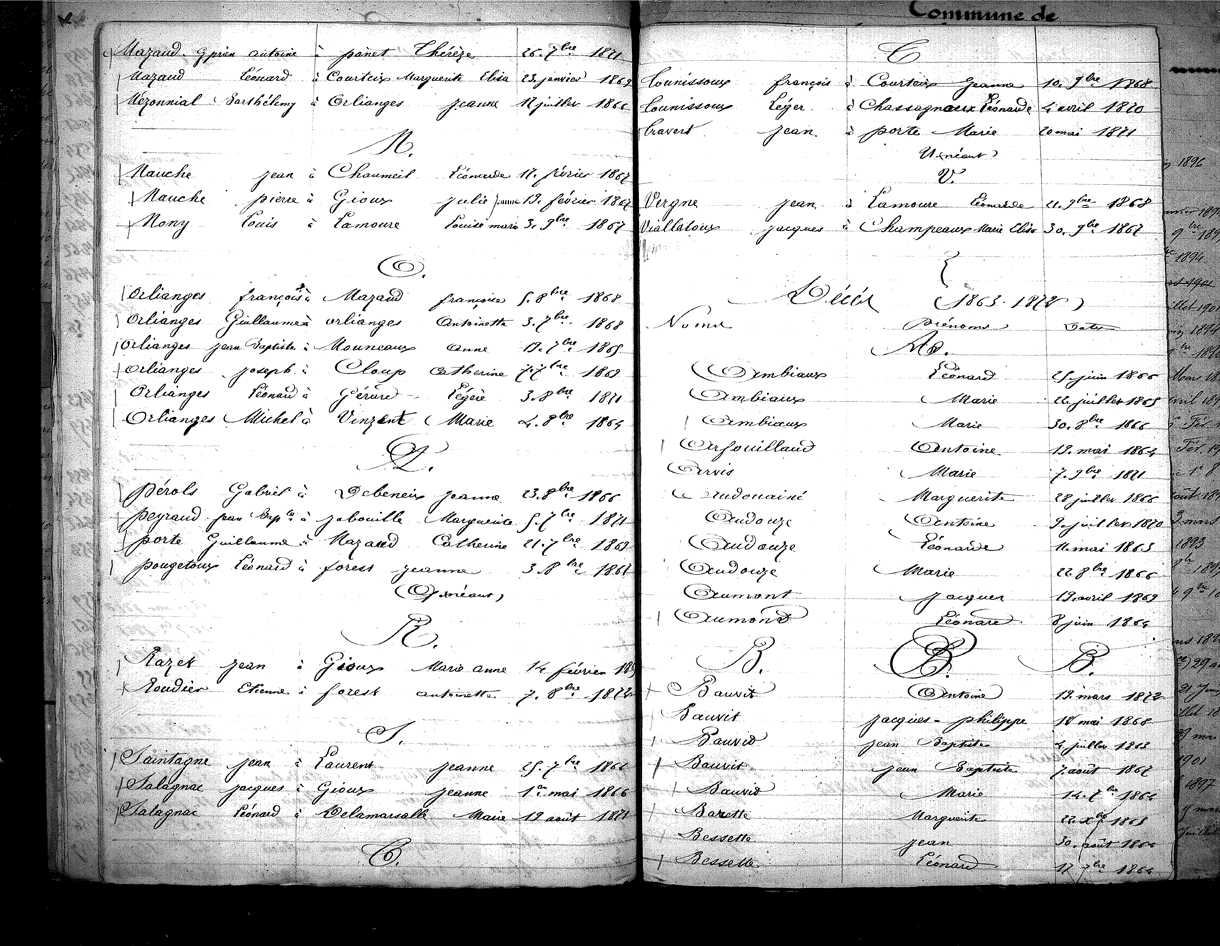 Mazaud Cyprien antoine à panet Thérèze 26. 7bre 1871
Mazaud Léonard à Courteix Marguerite Elisa 23 janvier 1869
Mézonnial Barthélemy à Orlianges jeanne juillet 1866
N.
Nauche jean à Chaumeil Léonarde 11. février 1867
Nauche pierre à Gioux julie jeanne 19. février 1867
Nony Louis à Lamoure Louise marie 3. 9bre 1867
O.
Orlianges françois à Mazaud françoise 5. 8bre 1868
Orlianges Guillaume à orlianges Antoinette 3. 7bre 1868
Orlianges jean Baptiste à Mouneaux anne 19. 7bre 1865
Orlianges joseph à Cloup Catherine 7bre 1869
Orlianges Léonard à Gérard Légère 3. 8bre 1871
Orlianges Michel à Vinzent Marie 4. 8bre 1864
P.
Pérols Gabriel à Debeneix jeanne 23. 8bre 1866
Peyraud jean Bapte à jabouille Marguerite 5. 7bre 1871
porte Guillaume à Mazaud Catherine 21. 7bre 1869
pougetoux Léonard à forest jeanne 3. 8bre 1864
Q (néant)
R.
Razet jean à Gioux Marie anne 14 février
Roudier Etienne à forest antoinette 7. 8bre 1872
S.
Saintagne jean à Laurent jeanne 25. 7bre 1866
Salagnac jacques à Gioux jeanne 1er mai 1866
Salagnac Léonard à Delamarsalle Marie 19 août 1872
T.
Commune de
T
Tounissoux françois à Courteix Jeanne 10. 9bre 1868
Tounissoux Léger à Chassagnaux Léonarde 4 avril 1870
Travert jean à porte Marie 20 mai 1871
U (néant)
V.
Vergne jean à Lamoure Léonarde 11. 9bre 1868
Viallatoux jacques à Champeaux Marie Elise 30. 9bre 1867
Décès (1863-1872)
Noms Prénoms Dates
A.
Ambiaux Léonard 25 juin 1866
Ambiaux Marie 26 juillet 1865
Ambiaux Marie 30. 8bre 1866
Arfouillaud Antoine 19. mai 1864
Arvis Marie 7. 9bre 1871
Audouainé Marguerite 28 juillet 1866
Audouze Antoine 9. juillet 1870
Audouze Léonarde 11. mai 1863
Audouze Marie 22 8bre 1866
Aumont jacques 19. avril 1869
Aumond Léonard 8 juin 1864
B. B. B.
Bauvit Antoine 19. mars 1872
Bauvit jacques-philippe 18 mai 1868
Bauvit jean Baptiste juillet 1863
Bauvit jean Baptiste 7 août 1867
Bauvit Marie 14. 7bre 1864
Barette Marguerite 1868
Bessette jean 30. août 1864
Bessette Léonard 17 7bre 1864